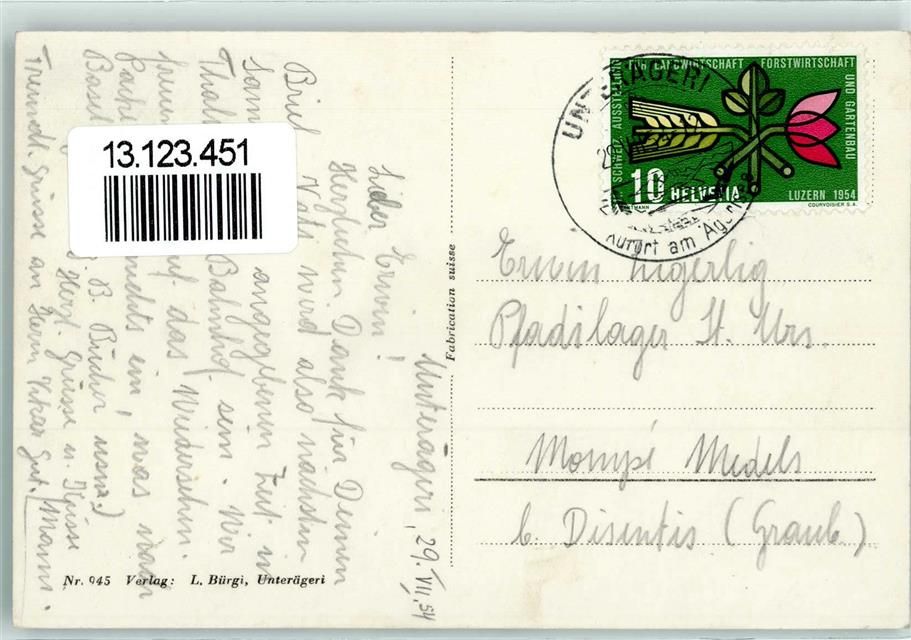 Unterägeri, 29. VII. 54
Lieber Erwin!
Herzlichen Dank für Deinen
Brief. Vati wird also nächsten
Sam angegebenen Zeit in
Thal Bahnhof sein. Wir
freuen auf das Wiedersehn.
Packe nichts ein, was man
Basel B. Bücher usw.)
Herzl. Grüsse u. Küsse
Freundl. Grüsse an Herrn Vikar Gut. (Mammi.
13.123.451
Nr. 945 Verlag: L. Bürgi, Unterägeri
Fabrication suisse
SCHWEIZ. AUSSTELLUNG FÜR LANDWIRTSCHAFT FORSTWIRTSCHAFT UND GARTENBAU
10 HELVETIA
LUZERN 1954
COURVOISIER S.A.
UNTERÄGERI
Kurort am Ägeri
Erwin
Pfadilager St. Urs.
Mompé Medels
b. Disentis (Graub.)